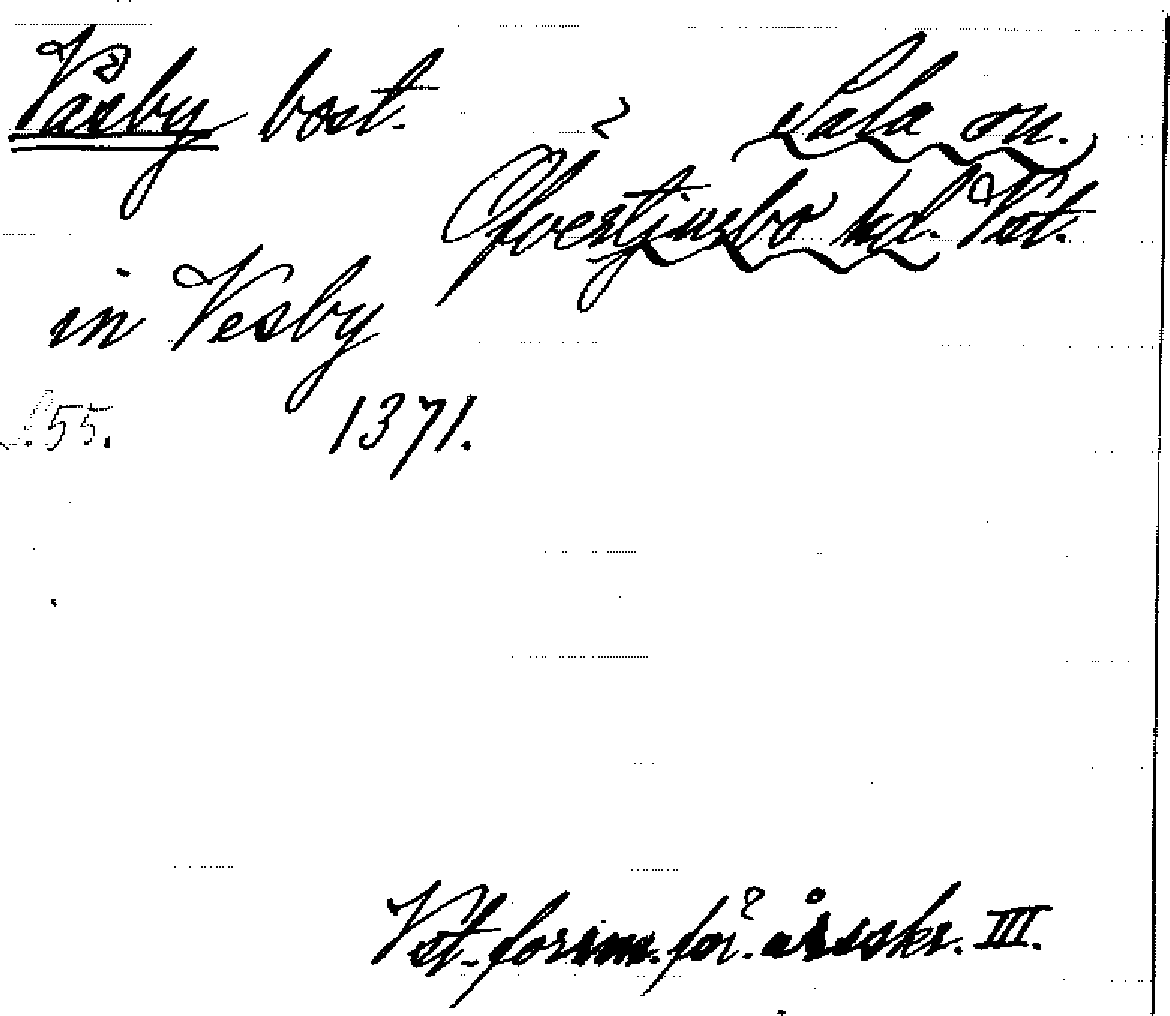 Väsby bost. Sala sn.
Öfvertjurbo hd. Vst.
in Vesby
S. 55. 1371.
Vst. fornm. för. årsskr. III.